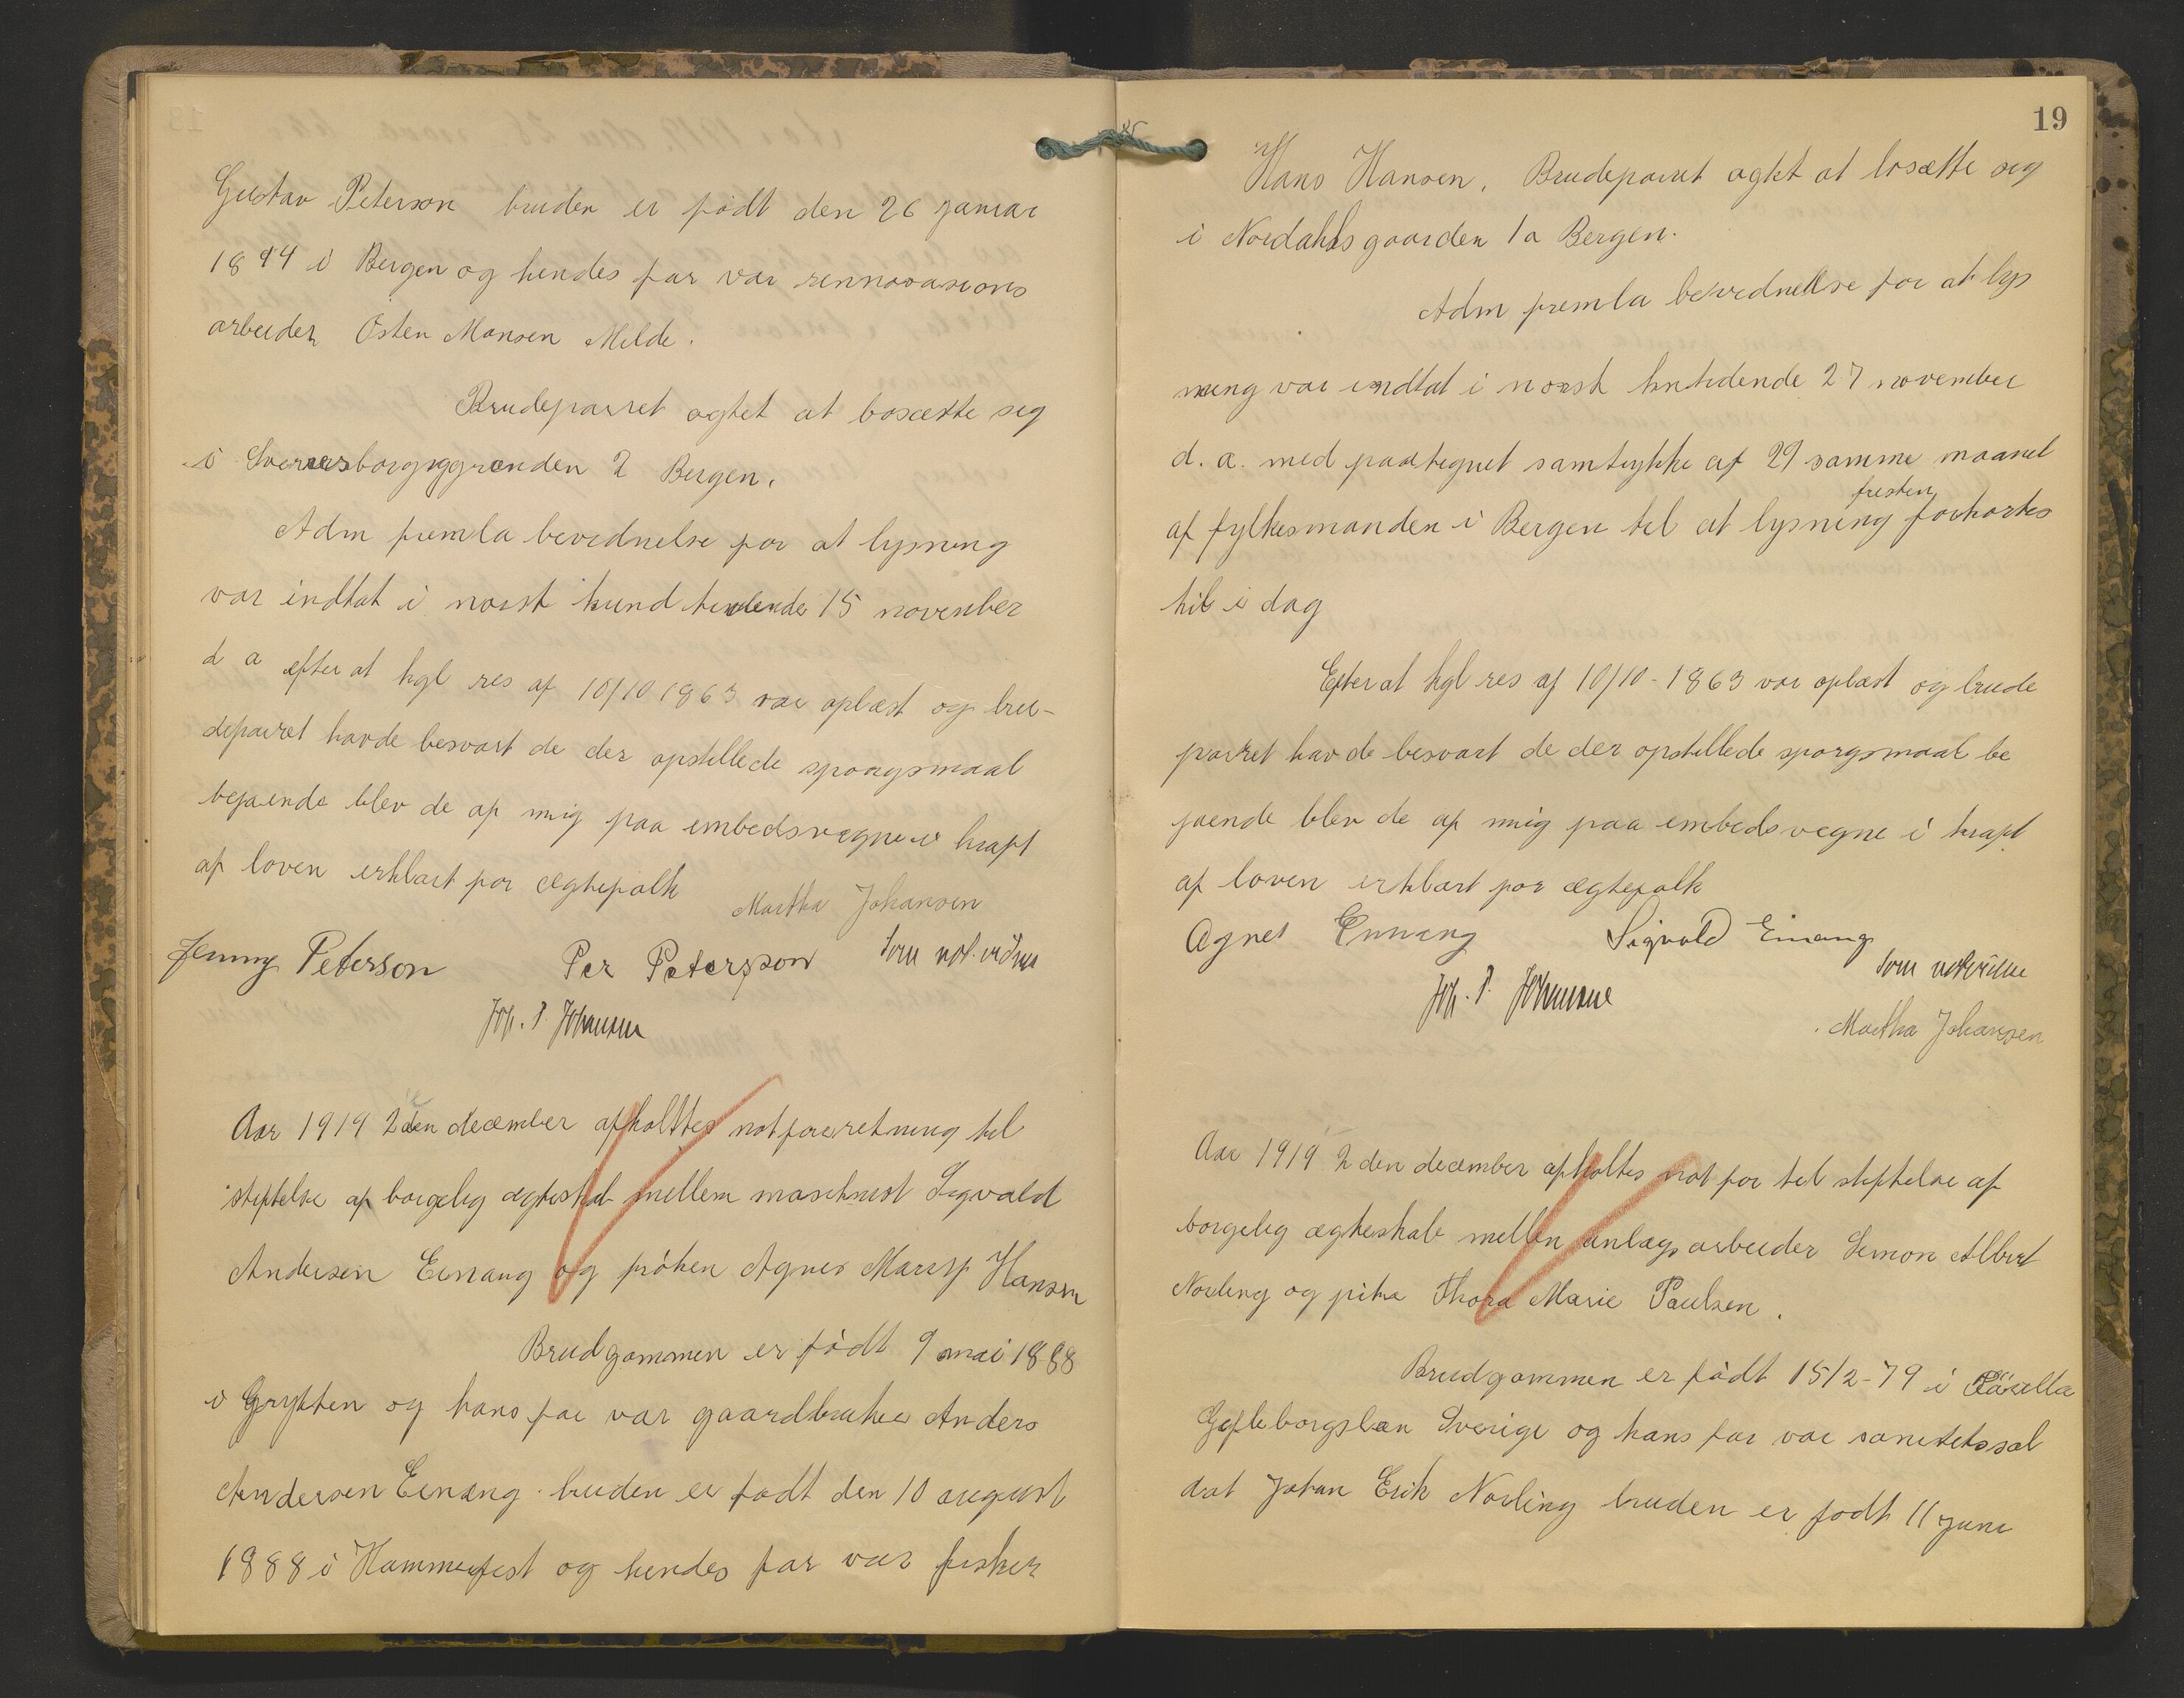 Gustav Peterson bruden er født den 26 januar
1894 i Bergen og hendes far var rennovasions
arbeider Østen Monsen Milde.
Brudeparret agtet at bosætte sig
i Sverresborgsgrenden 2 Bergen.
Adm fremla bevidnelse for at lysning
var indtat i norsk kund tidende 15 november
d a efter at kgl res af 10/10 1863 var oplæst og bru-
deparret havde besvart de der opstillede spørgsmaal
bejaende blev de af mig paa embedsvegne i kraft
af loven erklært for ægtefolk
Martha Johansen
Jenny Peterson Per Petersson som not.vidne
Joh. P. Johansen
Aar 1919 2den december afholttes notforretning til
stiftelse af borgelig ægteskab mellem maschinist Sigvald
Andersen Einang og frøken Agnes Hansen
Brudgommen er født 9 mai 1888
i Grytten og hans far var gaardbruker Anders
Andersen Einang. bruden er født den 10 august
1988 i Hammerfest og hendes far var fisker
19
Hans Hansen. Brudeparret agtet at bosætte sig
i Nordahlsgaarden 1a Bergen.
Adm fremla bevidnelse for at lys
ning var indtat i norsk kntidende 27 november
d. a. med paategnet samtykke af 29 samme maanet
fristen
af fylkesmanden i Bergen til at lysning forkortes
til i dag
Efter at kgl res af 10/10-1863 var oplæst og brude
parret havde besvart de der opstillede spørgsmaal be
jaende blev de af mig paa embedsvegne i kraft
af loven erklært for ægtefolk
Agnes Einang Sigvald Einang
som notvidne
Joh. P. Johansen
Martha Johansen
Aar 1919 2 den december afholtes not for til stiftelse af
borgelig ægteskab mellem anlægsarbeider Simon Albert
Norling og pike Thora Marie Paulsen.
Brudgommen er født 15/2-79 i
Gefleborgslæn Sverige og hans far var sanitetssol
dat Johan Erik Norling bruden er født 11 juni